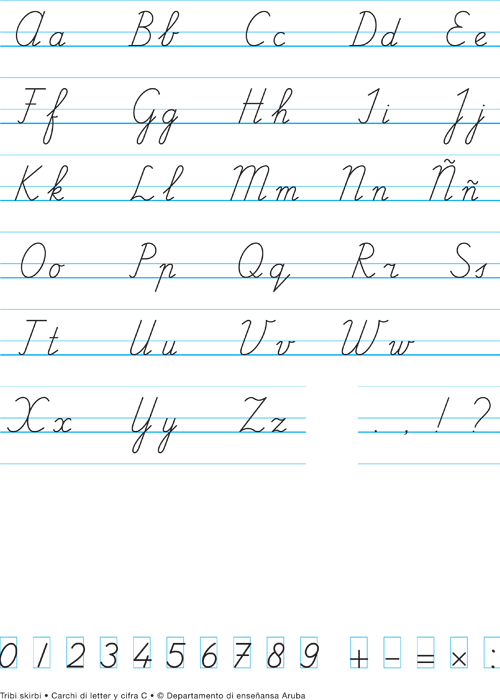 Aa Bb Cc Dd Ee
Ff Gg Hh Ii Jj
Kk Ll Mm Nn Ññ
Oo Pp Qq Rr Ss
Tt Uu Vv Ww
Xx Yy Zz . , ! ?
0 1 2 3 4 5 6 7 8 9 + - = × :
Tribi skirbi • Carchi di letter y cifra C • © Departamento di enseñansa Aruba